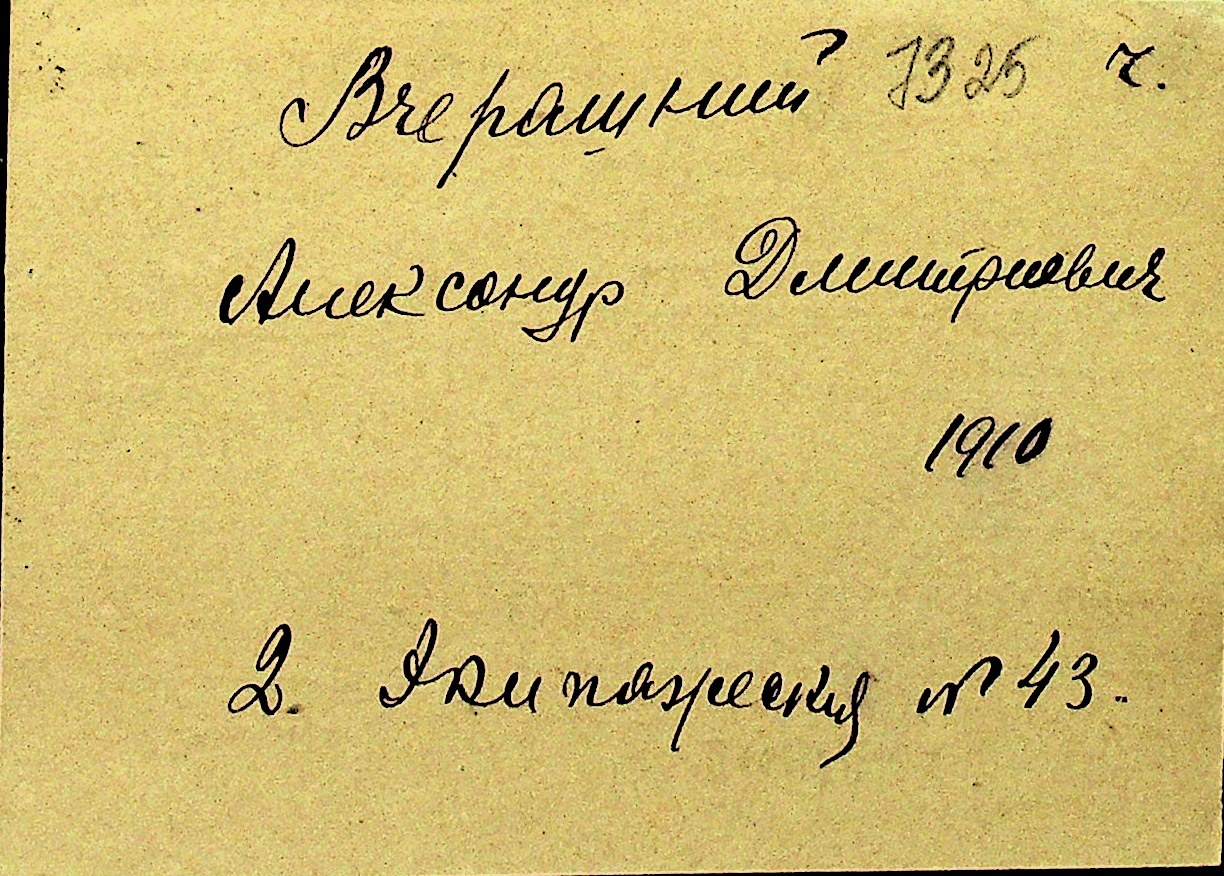 Вчерашний 1325 г.
Александр Дмитриевич
1910
2. Экипажеская № 43.